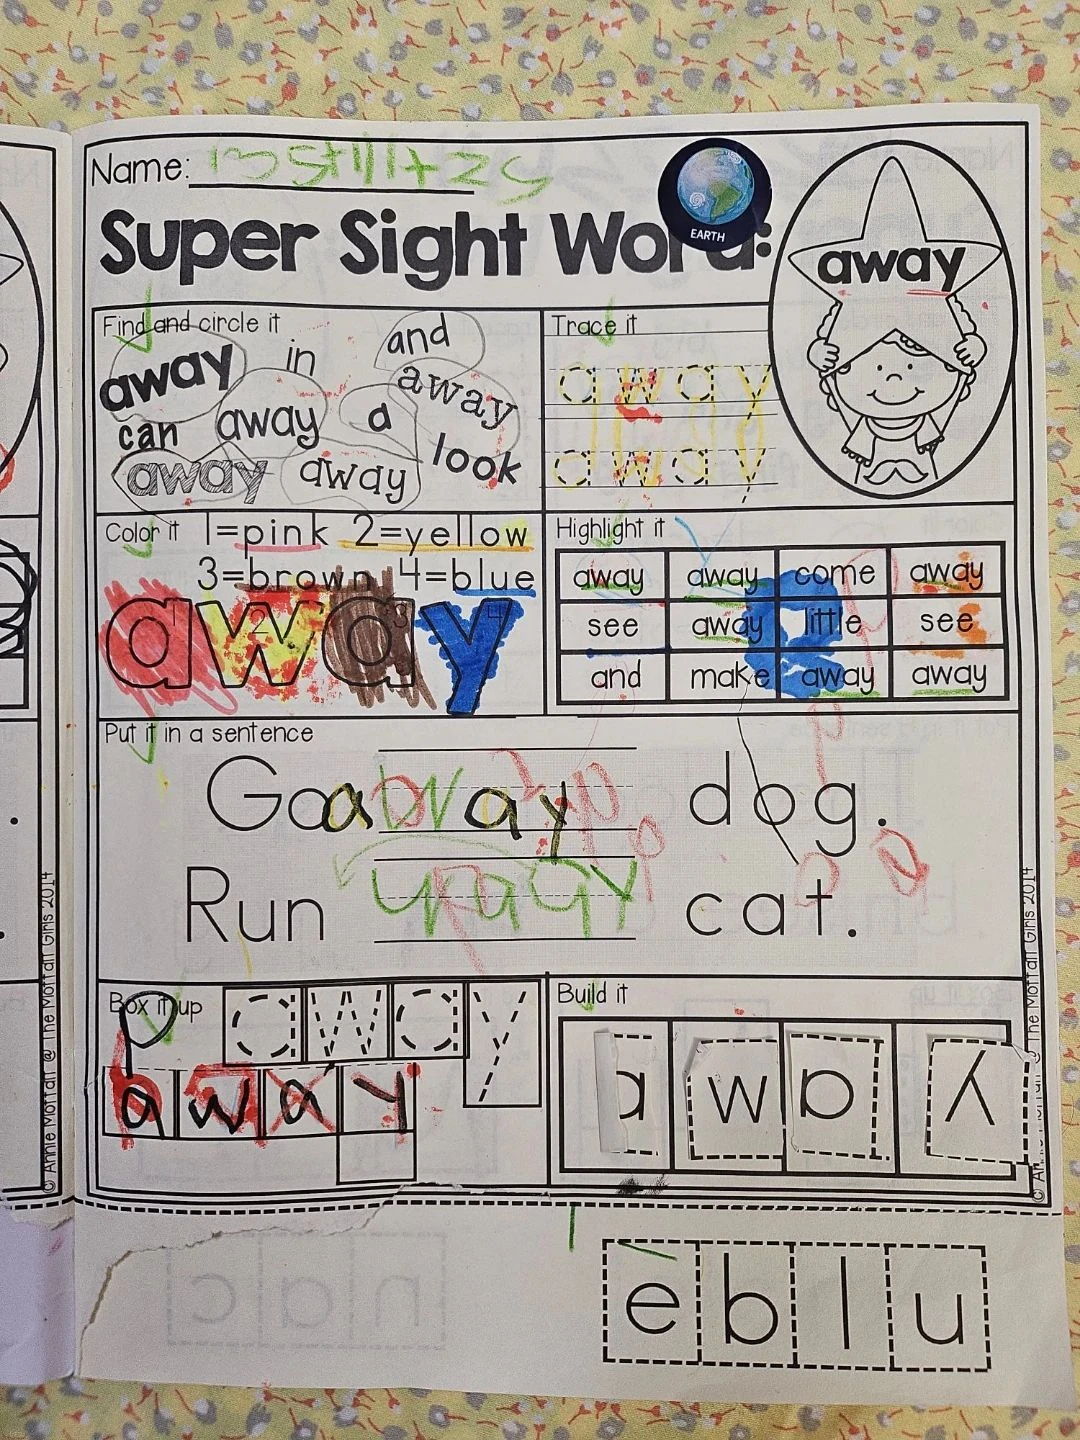 Name:
EARTH
Super Sight Word:
away
Find and circle it
and
away in
away
can away a
look
away away
Trace it
away
away
Color it 1=pink 2=yellow
3=brown 4=blue
away
1 2 3 4
Highlight it
away away come away
see away little see
and make away away
Put it in a sentence
Go away dog.
Run cat.
Box it up
away
away
Build it
a w a y
© Annie Moffatt @ The Moffatt Girls 2014
© Annie Moffatt @ The Moffatt Girls 2014
e b l u